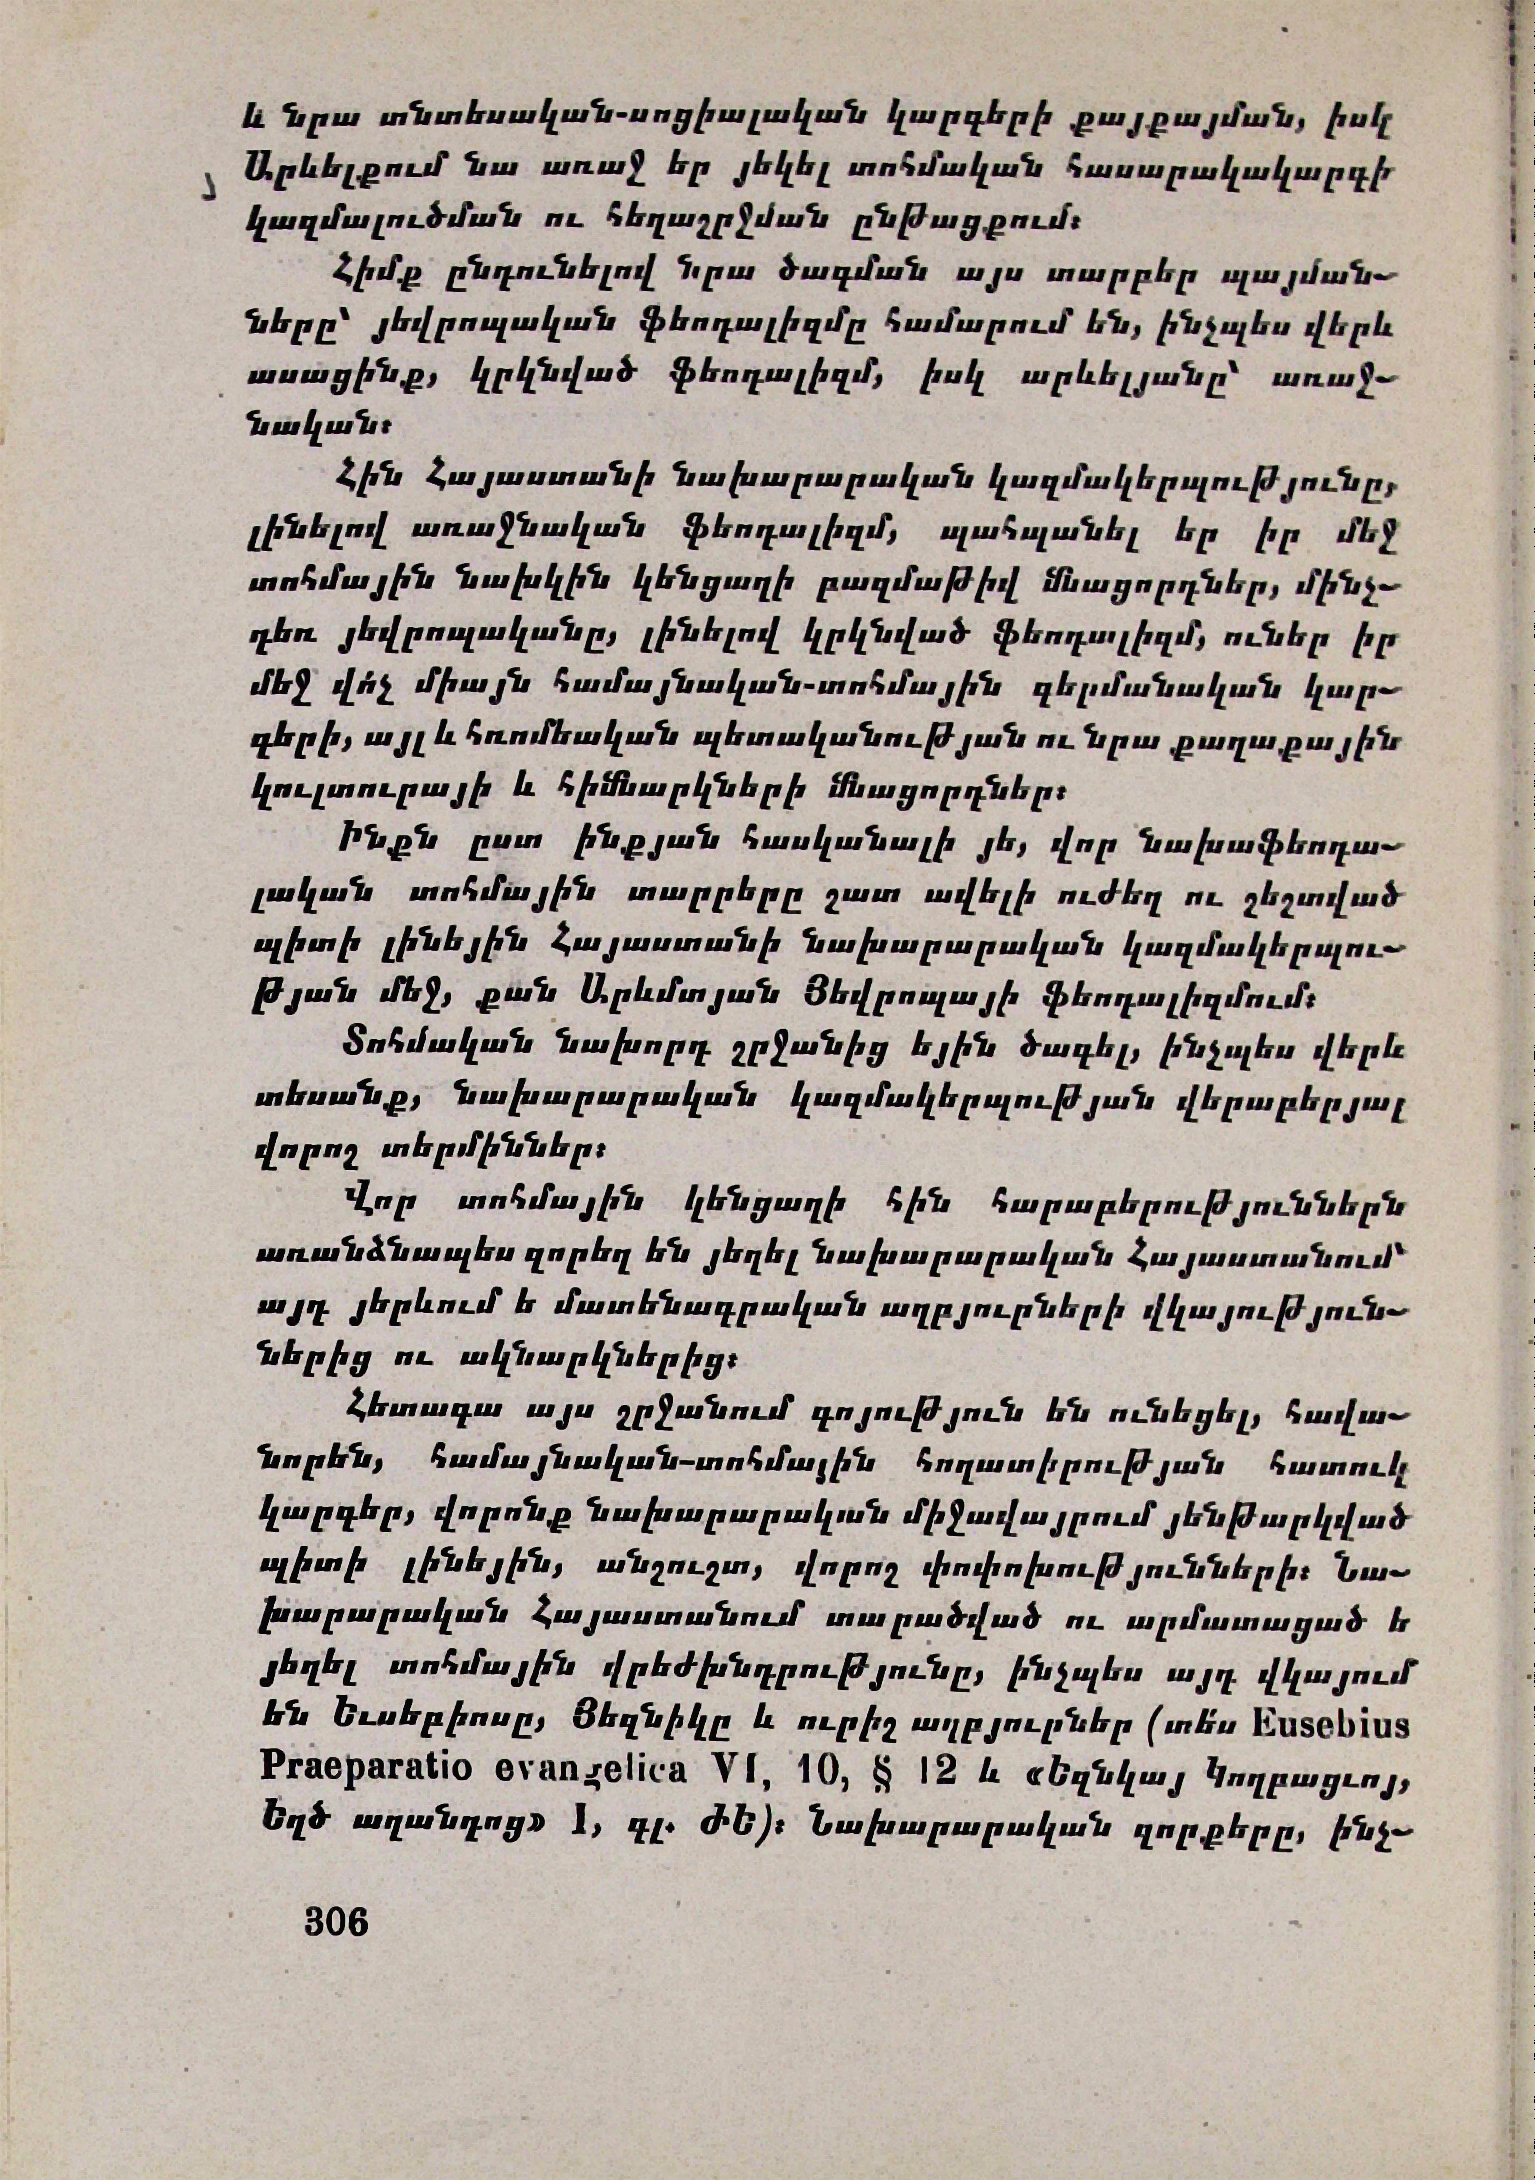 և նրա տնտեսական-սոցիալական կարգերի քայքայման, իսկ
Արևելքում նա առաջ եր յեկել տոհմական հասարակակարգի
կազմալուծման ու հեղաշրջման ընթացքում։
Հիմք ընդունելով նրա ծագման այս տարբեր պայման֊
ները՝ յեվրոպական ֆեոդալիզմը համարում են, ինչպես վերև
ասացինք, կրկնված ֆեոդալիզմ, իսկ արևելյանը՝ առաջ֊
նական։
Հին Հայաստանի նախարարական կազմակերպությունը,
լինելով առաջնական ֆեոդալիզմ, պահպանել եր իր մեջ
տոհմային նախկին կենցաղի բազմաթիվ մնացորդներ, մինչ֊
դեռ յեվրոպականը, լինելով կրկնված ֆեոդալիզմ, ուներ իր
մեջ վո՛չ միայն համայնական-տոհմային գերմանական կար֊
գերի, այլ և հռոմեական պետականության ու նրա քաղաքային
կուլտուրայի և հիմնարկների մնացորդներ։
Ինքն ըստ ինքյան հասկանալի յե, վոր նախաֆեոդա֊
լական տոհմային տարրերը շատ ավելի ուժեղ ու շեշտված
պիտի լինեյին Հայաստանի նախարարական կազմակերպու֊
թյան մեջ, քան Արևմտյան Յեվրոպայի ֆեոդալիզմում։
Տոհմական նախորդ շրջանից եյին ծագել, ինչպես վերև
տեսանք, նախարարական կազմակերպության վերաբերյալ
վորոշ տերմիններ։
Վոր տոհմային կենցաղի հին հարաբերություններն
առանձնապես զորեղ են յեղել նախարարական Հայաստանում՝
այդ յերևում ե մատենագրական աղբյուրների վկայություն֊
ներից ու ակնարկներից։
Հետագա այս շրջանում գոյություն են ունեցել, հավա֊
նորեն, համայնական-տոհմային հողատիրության հատուկ
կարգեր, վորոնք նախարարական միջավայրում յենթարկված
պիտի լինեյին, անշուշտ, վորոշ փոփոխությունների։ Նա֊
խարարական Հայաստանում տարածված ու արմատացած ե
յեղել տոհմային վրեժխնդրությունը, ինչպես այդ վկայում
են Եւսեբիոսը, Յեզնիկը և ուրիշ աղբյուրներ (տե՛ս Eusebius
Praeparatio evangelica VI, 10, § 12 և «Եզնկայ Կողբացւոյ,
Եղծ աղանդոց» I, գլ. ԺԵ)։ Նախարարական զորքերը, ինչ֊
306